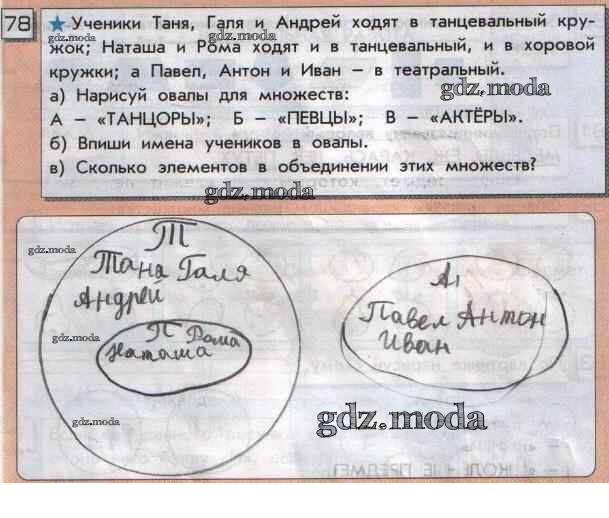 78 ★ Ученики Таня, Галя и Андрей ходят в танцевальный кру-
gdz.moda gdz.moda
жок; Наташа и Рома ходят и в танцевальный, и в хоровой
кружки; а Павел, Антон и Иван – в театральный.
gdz.moda
а) Нарисуй овалы для множеств:
А – «ТАНЦОРЫ»; Б – «ПЕВЦЫ»; В – «АКТЁРЫ».
б) Впиши имена учеников в овалы.
в) Сколько элементов в объединении этих множеств?
gdz.moda
Т
gdz.moda
Таня Галя
Андрей
П Рома
Наташа
gdz.moda
gdz.moda
А
Павел Антон
Иван
gdz.moda